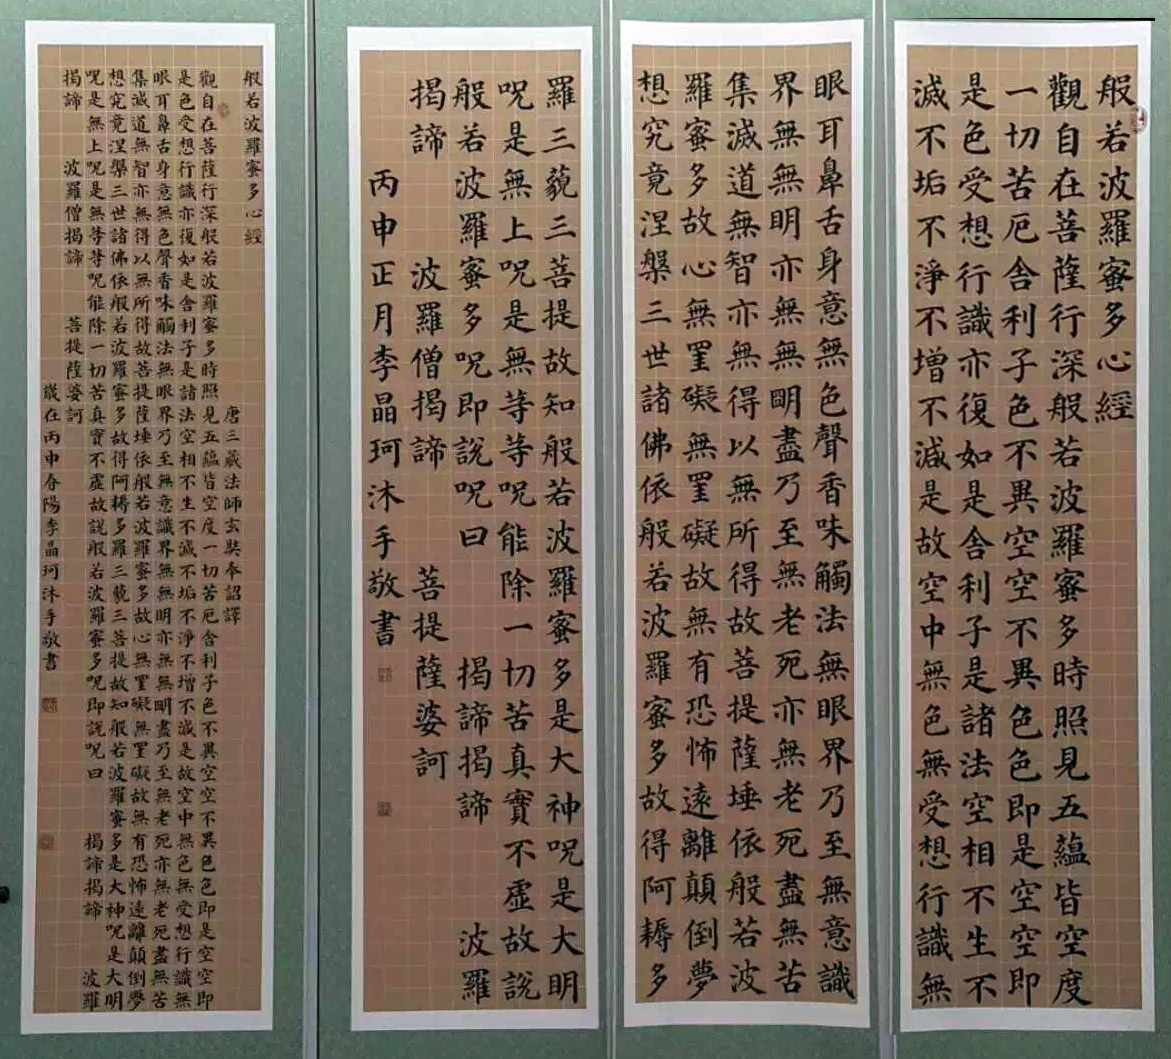 般若波羅蜜多心經
觀自在菩薩行深般若波羅蜜多時照見五蘊皆空度
一切苦厄舍利子色不異空空不異色色即是空空即
是色受想行識亦復如是舍利子是諸法空相不生不
滅不垢不淨不增不減是故空中無色無受想行識無
眼耳鼻舌身意無色聲香味觸法無眼界乃至無意識
界無無明亦無無明盡乃至無老死亦無老死盡無苦
集滅道無智亦無得以無所得故菩提薩埵依般若波
羅蜜多故心無罣礙無罣礙故無有恐怖遠離顛倒夢
想究竟涅槃三世諸佛依般若波羅蜜多故得阿耨多
羅三藐三菩提故知般若波羅蜜多是大神呪是大明
呪是無上呪是無等等呪能除一切苦真實不虛故說
般若波羅蜜多呪即說呪曰 揭諦揭諦 波羅
揭諦 波羅僧揭諦 菩提薩婆訶
丙申正月李晶珂沐手敬書
般若波羅蜜多心經
唐三藏法師玄奘奉詔譯
觀自在菩薩行深般若波羅蜜多時照見五蘊皆空度一切苦厄舍利子色不異空空不異色色即是空空即
是色受想行識亦復如是舍利子是諸法空相不生不滅不垢不淨不增不減是故空中無色無受想行識無
眼耳鼻舌身意無色聲香味觸法無眼界乃至無意識界無無明亦無無明盡乃至無老死亦無老死盡無苦
集滅道無智亦無得以無所得故菩提薩埵依般若波羅蜜多故心無罣礙無罣礙故無有恐怖遠離顛倒夢
想究竟涅槃三世諸佛依般若波羅蜜多故得阿耨多羅三藐三菩提故知般若波羅蜜多是大神呪是大明
呪是無上呪是無等等呪能除一切苦真實不虛故說般若波羅蜜多呪即說呪曰 揭諦揭諦 波羅
揭諦 波羅僧揭諦 菩提薩婆訶
歲在丙申春陽李晶珂沐手敬書